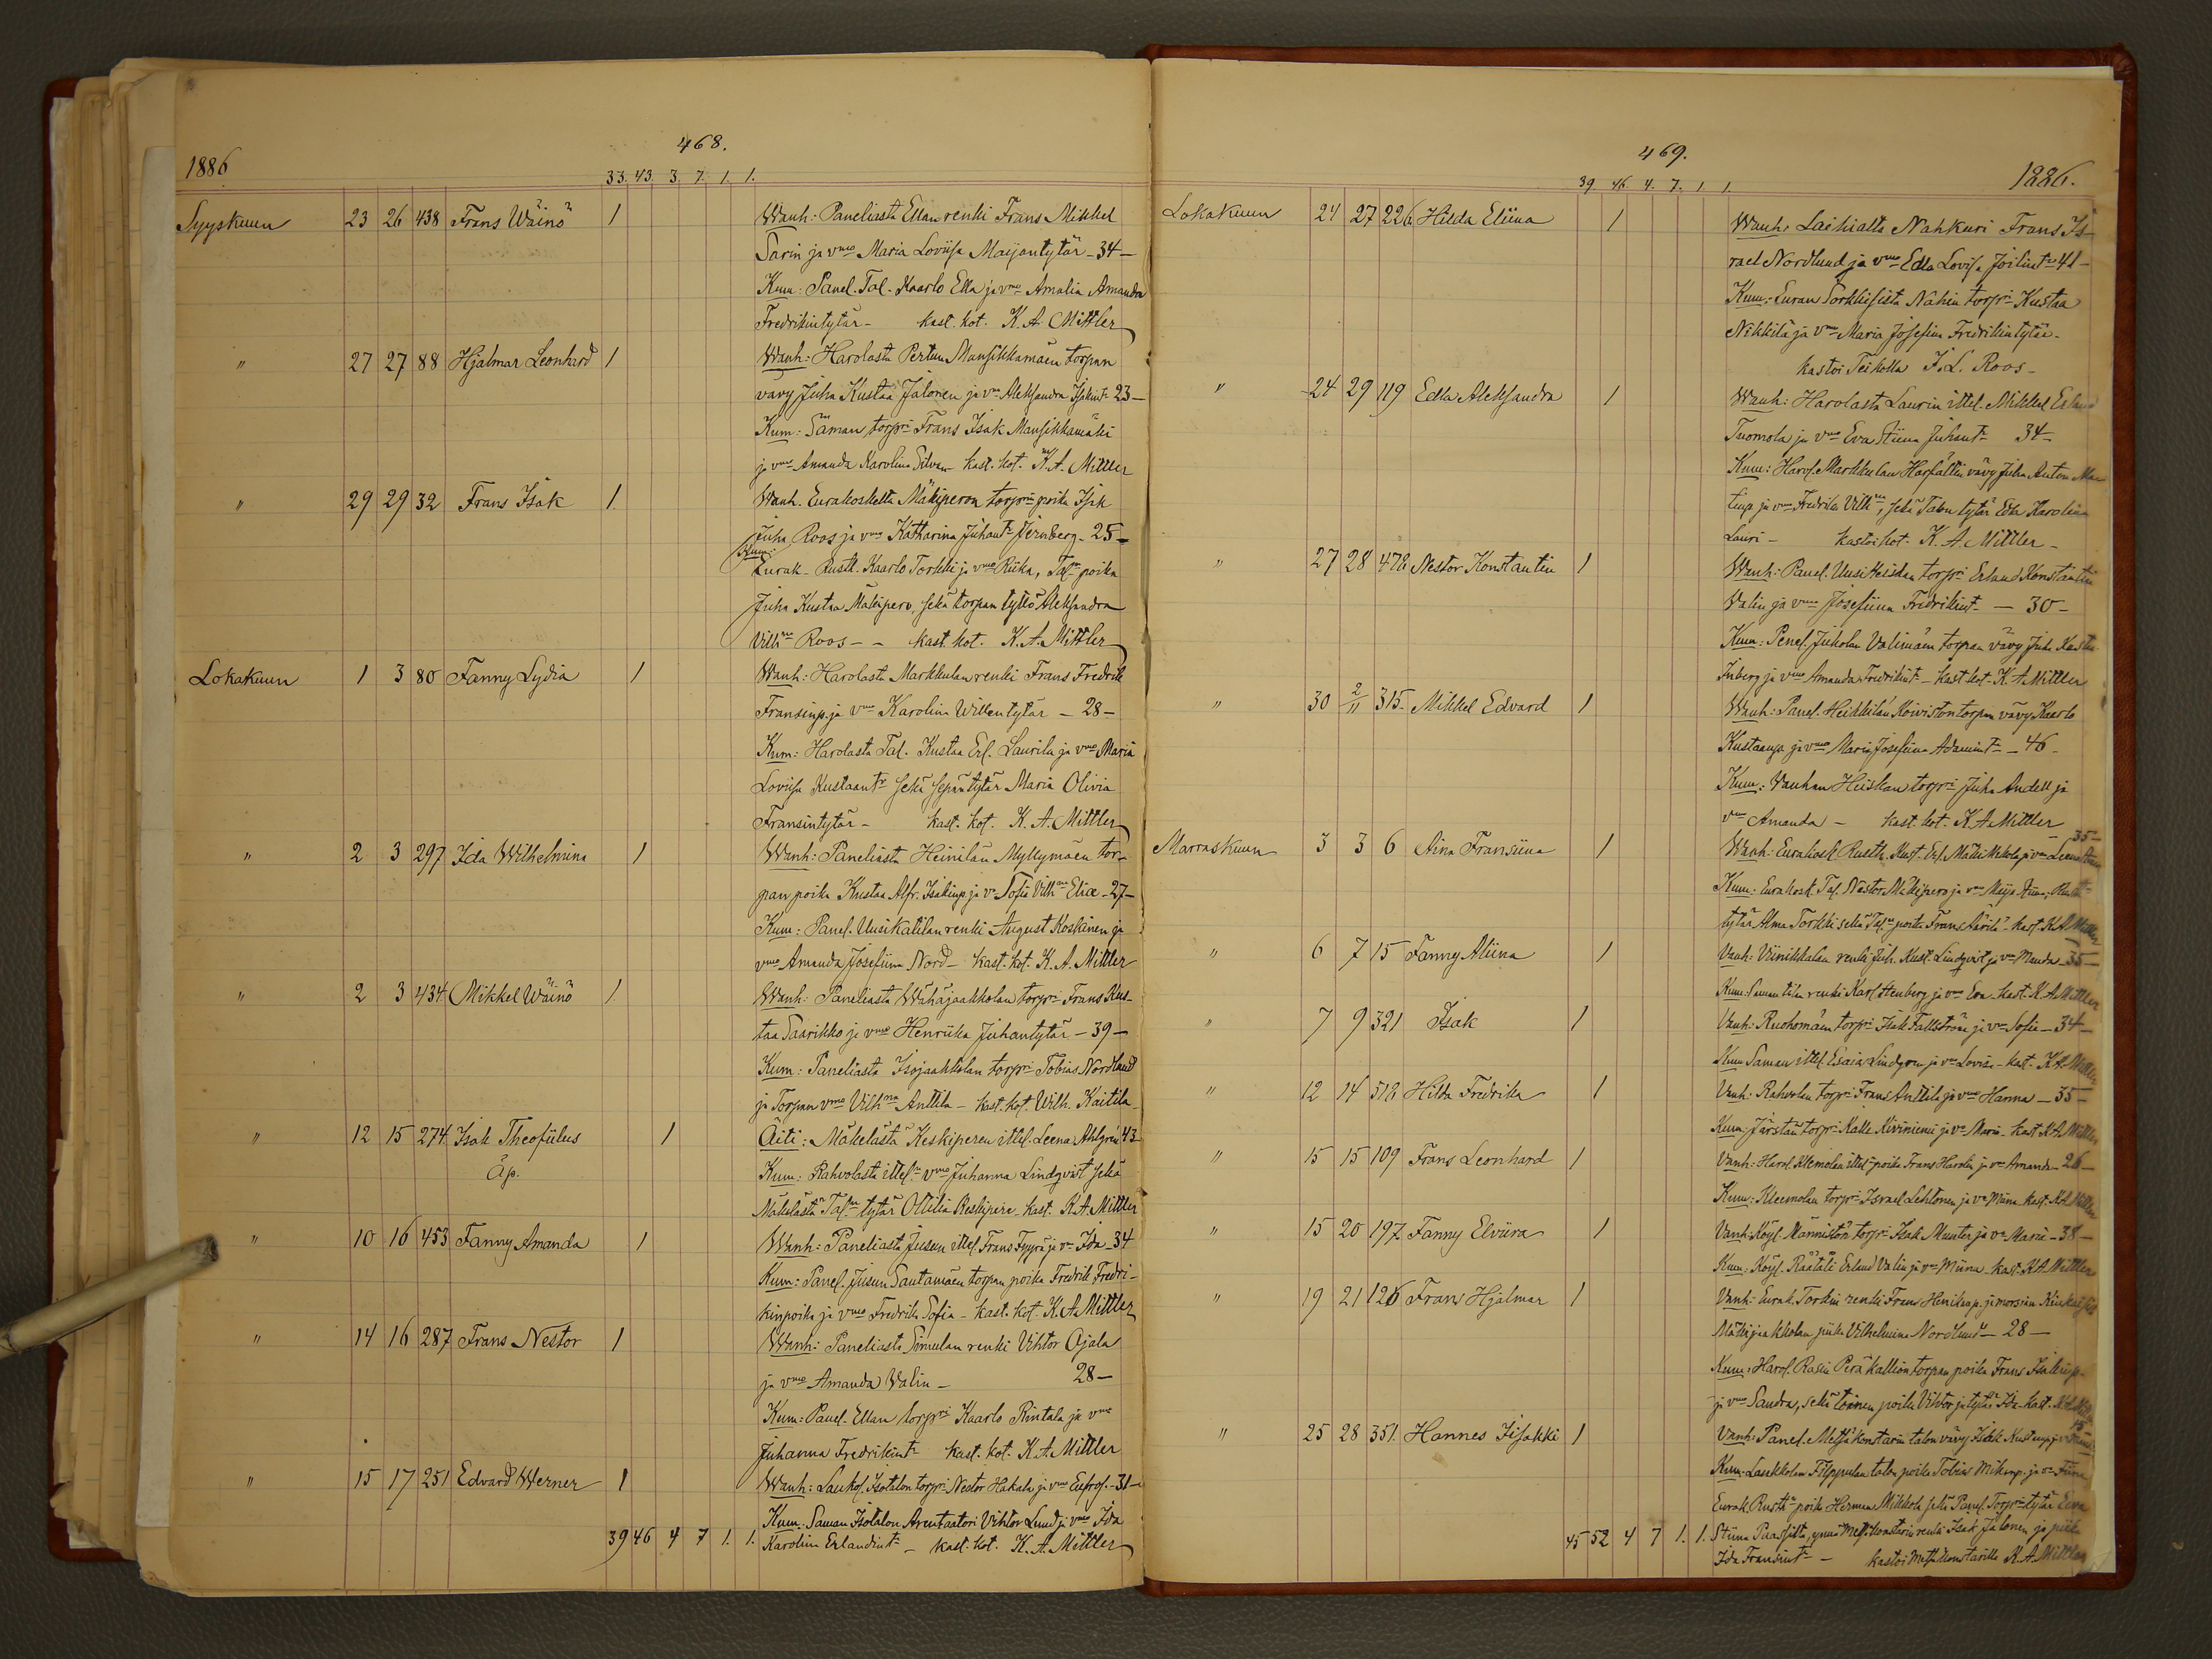 468.
1886
33. 43. 3. 7. 1. 1.
Syyskuun 23 26 438 Frans Wäinö 1 Wanh: Paneliasta Ellan renki Frans Mikkel
Sarin ja vmo Maria Loviisa Maijantytär - 34 -
Kum: Panel. Tal. Kaarlo Ella ja vmo Amalia Amanda
Fredrikintytär - kast. kot. K. A. Mittler
" 27 27 88 Hjalmar Leonhard 1 Wanh: Harolasta Pertun Mansikkamäen torpan
vävy Juha Kustaa Jalonen ja vmo Aleksandra Isakint. 23 -
Kum: Saman torpri Frans Isak Mansikkamäki
ja vmo Amanda Karolina Silvan kast. kot. K. A. Mittler
" 29 29 32 Frans Isak 1 Wanh. Eurakoskelta Mäkiperon torprin poika Isak
Juha Roos ja vmo Katharina Juhant. Jernberg - 25 -
Kum:
Eurak. Rustt. Kaarlo Torkki ja vmo Riika, Taln poika
Juha Kustaa Mäkipero, sekä torpan tyttö Aleksandra
Vilhna Roos - - kast. kot. K. A. Mittler
Lokakuun 1 3 80 Fanny Lydia 1 Wanh: Harolasta Markkulan renki Frans Fredrik
Fransinp. ja vmo Karolina Willentytär - 28 -
Kum: Harolasta Tal. Kustaa Erl. Laurila ja vmo Maria
Loviisa Kustaantr sekä sepän tytär Maria Olivia
Fransintytär - kast. kot. K. A. Mittler
" 2 3 297 Ida Wilhelmina 1 Wanh: Paneliasta Heinilän Myllymäen tor-
pan poika Kustaa Alfr. Isakinp. ja vo Sofia Vilhna Eliae - 27 -
Kum: Panel. Uusikatilan renki August Koskinen ja
vmo Amanda Josefiina Nord - kast. kot. K. A. Mittler
" 2 3 434 Mikkel Wäinö 1 Wanh: Paneliasta Wähäjaakkolan torpri Frans Kus-
taa Saarikko ja vmo Henriika Juhantytär - 39 -
Kum: Paneliasta Isojaakkolan torpri Tobias Nordlund
ja Torpan vmo Vilhna Anttila - kast. kot. Wilh. Kaitila
" 12 15 274 Isak Theofiilus 1 Äiti: Mäkelästä Keskiperen ittel. Leena Ahlgrén 43
Äp. Kum: Rahvolasta itteln vmo Juhanna Lindqvist sekä
Mäkelästä Taln tytär Ottilia Keskipere kast. K. A. Mittler
" 10 16 453 Fanny Amanda 1 Wanh: Paneliasta Jusun ittel. Frans Fyyrä ja vo Ida 34
Kum: Panel. Jusun Santamäen torpan poika Fredrik Fredri-
kinpoika ja vmo Fredrika Sofia - kast. kot. K. A. Mittler
" 14 16 287 Frans Nestor 1 Wanh: Paneliasta Simulan renki Vihtor Ojala
ja vmo Amanda Walin - 28 -
Kum: Panel. Ellan torpri Kaarlo Rintala ja vmo
Juhanna Fredrikintr kast. kot. K. A. Mittler
" 15 17 251 Edvard Werner 1 Wanh: Lauk. Isotalon torpri Nestor Hakala ja vmo Eufros. - 31 -
Kum: Saman Isotalon Arentaatori Vihtor Lund ja vmo Ida
39 46 4 7 1. 1. Karolina Erlandintr - kast. kot. K. A. Mittler
469.
1886.
39 46 4. 7. 1. 1.
Lokakuun 24 27 226 Hilda Eliina 1 Wanh: Laihialta Nahkuri Frans Is-
rael Nordlund ja vmo Edla Lovisa 41 -
Kum: Euran Sorkkisista Nahin torpri Kustaa
Nikkilä ja vmo Maria Josefina Fredrikintytär -
kastoi F. L. Roos -
" 24 29 119 Edla Aleksandra 1 Wanh: Harolasta Laurin ittel. Mikkel Erland
Tuomola ja vmo Eva Stiina Juhantr 34 -
Kum: Harol. Markkulan vävy Juha Anton
ja vmo Fredrika Vilhna, sekä Talon tytär Edla Karolina
Lauri - kastoi kot. K. A. Mittler -
" 27 28 478 Nestor Konstantin 1 Wanh: Panel. Uusi Heiskan torpri Erland Konstantin
Valin ja vmo Josefiina Fredrikint. - 30 -
Kum: Panel. Jukolan Valimäen torpan vävy Juha Kustaa
Inberg ja vmo Amanda Fredrikint. - kast. kot. K. A. Mittler
" 30 2/11 315 Mikkel Edvard 1 Wanh: Panel. Heikkilän Koiviston torpan vävy Kaarlo
Kustaanp. ja vmo Maria Josefiina Adamint. - 46 -
Kum: Vanhan Heiskan torpri Juha Andell ja
vmo Amanda - kast. kot. K. A. Mittler
Marraskuun 3 3 6 Aina Fransiina 1 Wanh: Eurakosk. Rustth. Kust. Erl. Mäki Mikola ja vmo Leena 35 -
Kum: Eurakosk. Tal. Nestor Mäkipero ja vmo Maija Stiina,
tytär Alma Torkki sekä Taln poika Frans Äärilä - kast. K. A. Mittler
" 6 7 15 Fanny Aliina 1 Vanh: Viinikkalan renki Juh. Kust. Lindqvist ja vmo Manda - 35 -
Kum: Saman tilan renki Karl Stenberg ja vmo Eva kast. K. A. Mittler
" 7 9 321 Isak 1 Vanh: Ruohomäen torpri Isak Fallström ja vo Sofia - 34 -
Kum: Saman ittel. Esaias Lindgren ja vo Lovisa - kast. K. A. Mittler
" 12 14 518 Hilda Fredrika 1 Vanh: Rahvolan torpri Frans Anttila ja vmo Hanna - 35 -
Kum: Järstän torpri Kalle Kiviniemi ja vo Maria - kast. K. A. Mittler
" 15 15 109 Frans Leonhard 1 Vanh: Harol. Klemolan itteln poika Frans Harolin ja vo Amanda - 26 -
Kum: Kleemolan torpri Israel Lehtonen ja vo Miina kast. K. A. Mittler
" 15 20 197 Fanny Elviira 1 Vanh: Köyl. Männistön torpri Isak Munter ja vo Maria - 38 -
Kum: Köyl. Räätäli Erland Valin ja vo Miina - kast. K. A. Mittler
" 19 21 126 Frans Hjalmar 1 Vanh: Eurak. Torkin renki Frans Henrikinp. ja morsian Kiukaisista
Mäkijaakkolan piika Vilhelmina Nordlund - 28 -
Kum: Harol. Rasin Peräkallion torpan poika Frans Isakinp.
ja vmo Sandra, sekä toinen poika Vihtor ja tytär Ida - kast.
" 25 28 351. Hannes Iisakki 1 Vanh: Panel. Metsäkonstarin talon vävy Isak Kustaanp. ja vmo 15 -
Kum: Laukkolan Filppulan talon poika Tobias Mikinp. ja vo Stiina
Eurak. Rustt. poika Herman Mikkola sekä Panel. Torprin tytär Eeva
45 52 4 7 1. 1. Stiina Paassilta, ynnä Metsäkonstarin renki Isak Jalonen ja piika
Ida Fransint. - kastoi Metsäkonstarilla K. A. Mittler